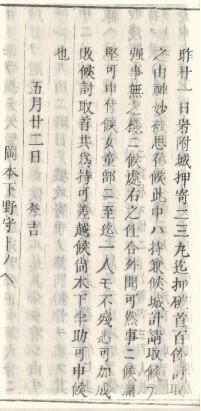 昨廿一日岩附城押寄二三丸迄押破首百餘討取
之由神妙被思召候此中ハ持兼候城計請取候ヿ
強事無之樣ニ候處右之仕合外聞可然事ニ候彌
堅可申付候女童部ニ至迄一人モ不殘悉可加成
敗候討取首共爲持可差越候尚木下半助可申候
也
五月廿二日 秀吉
岡本下野守トノヘ